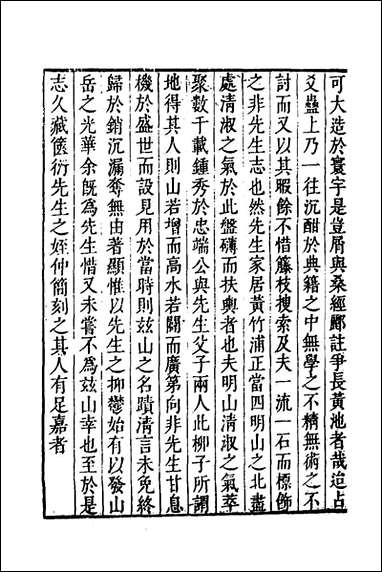 可大造於寰宇是豈屑與桑經酈註爭長黃池者哉迨占
爻蠱上乃一往沉酣於典籍之中無學之不精無術之不
討而又以其暇餘不惜籐枝搜索及夫一流一石而標飾
之非先生志也然先生家居黃竹浦正當四明山之北盡
處清淑之氣於此盤礴而扶輿者也夫明山清淑之氣萃
聚數千載鍾秀於忠端公與先生父子兩人此柳子所謂
地得其人則山若增而高水若闢而廣第向非先生甘息
機於盛世而設見用於當時則茲山之名蹟清言未免終
歸於銷沉漏奪無由著顯惟以先生之抑鬱始有以發山
岳之光華余既為先生惜又未嘗不為茲山幸也至於是
志久藏篋衍先生之姪仲簡刻之其人有足嘉者